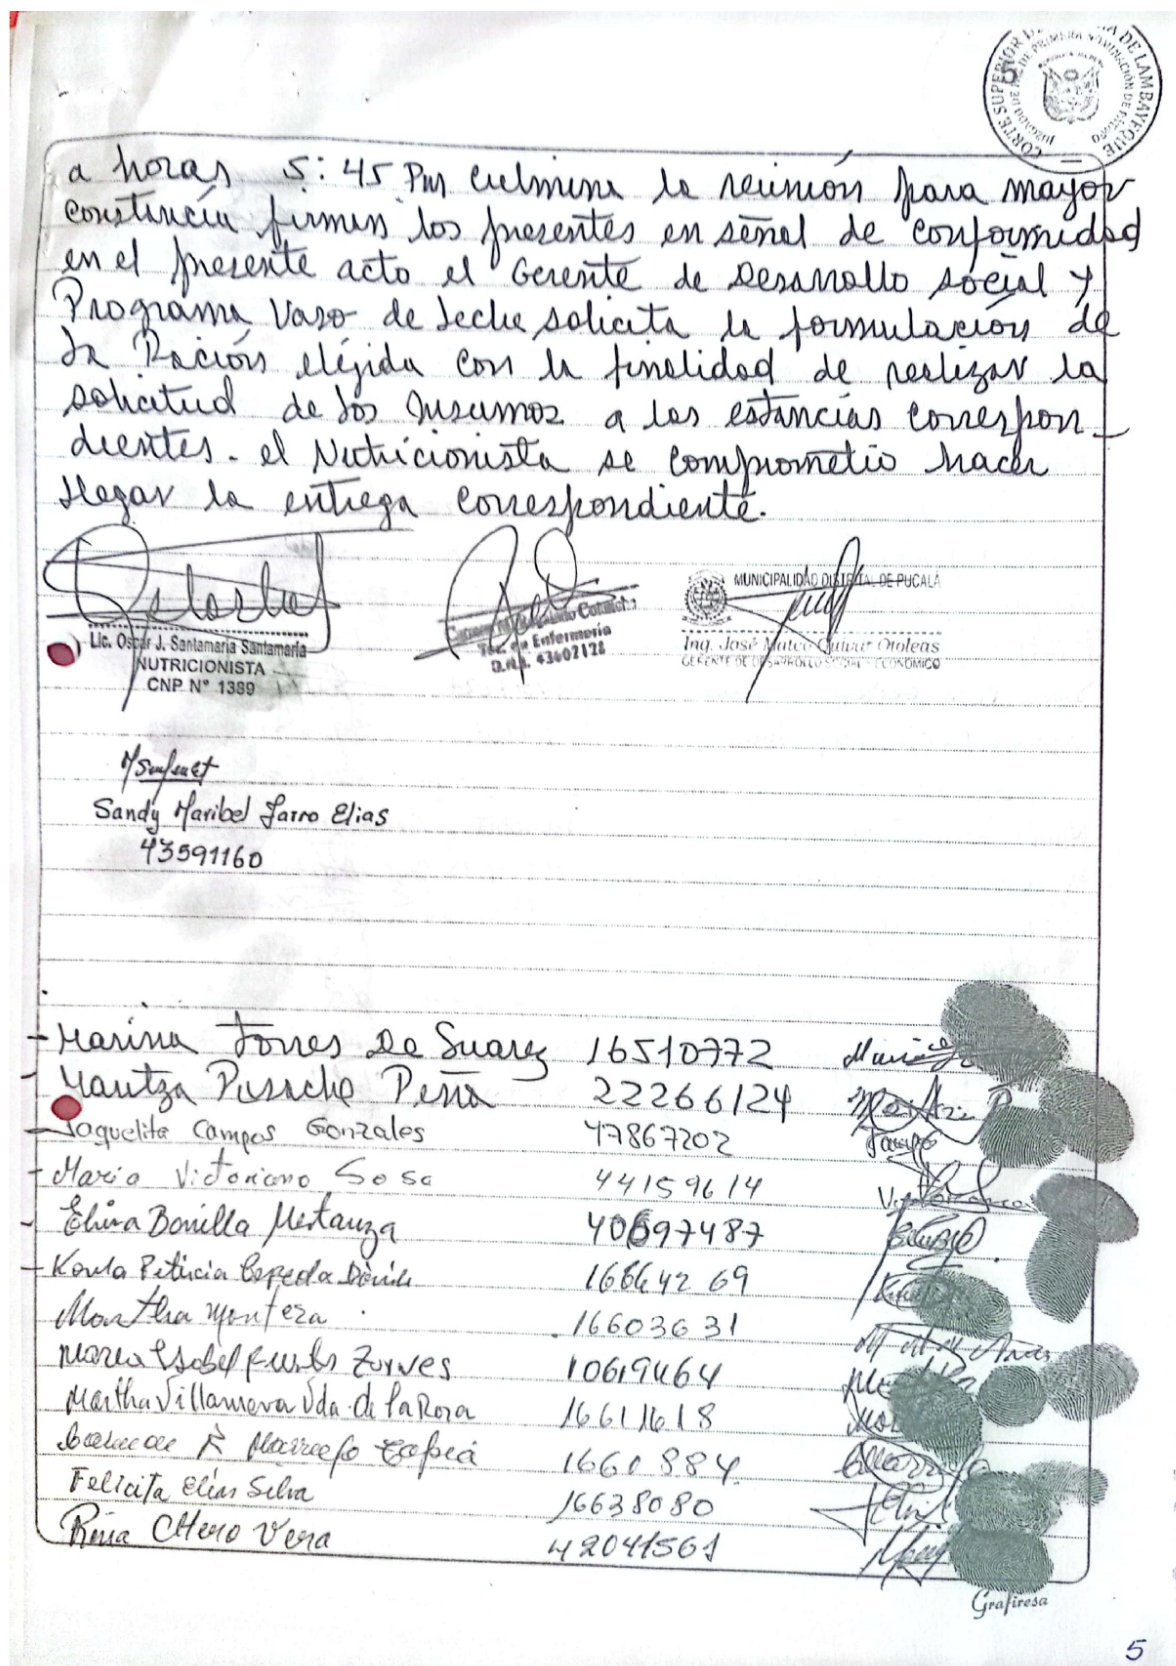 CORTE SUPERIOR DE LAMBAYEQUE
a horas 5:45 Pm culmina la reunión para mayor
constancia firman los presentes en señal de conformidad
en el presente acto el Gerente de Desarrollo social y
Programa Vaso de Leche solicita la formulación de
La Ración elejida con la finalidad de realizar la
solicitud de los Insumos a las estancias correspon_
dientes. el Nutricionista se comprometio hacer
llegar la entrega correspondiente.
Lic. Oscar J. Santamaría Santamaría
NUTRICIONISTA
CNP N° 1389
Tec. en Enfermería
D.N.I. 43602128
MUNICIPALIDAD DISTRITAL DE PUCALÁ
Ing. José Mateo
GERENTE DE DESARROLLO SOCIAL ECONOMICO
Sandy Maribel Jarro Elias
43591160
- Marina Torres De Suarez 16510772
Maritza Pisache Peña 22266124
- Jaquelita Campos Gonzales 47867202
- Maria Victoriano Sosa 44159614
- Elvira Bonilla Mestanza 40697487
- Karla Patricia Cepeda 16664269
Martha Montera 16603631
Maria Isabel Zurves 10619464
Martha Villanueva Vda. de la Roza 16611618
1661884
Felicita Elias Silva 16638080
Rina Otero Vera 42041561
Grafiresa
5